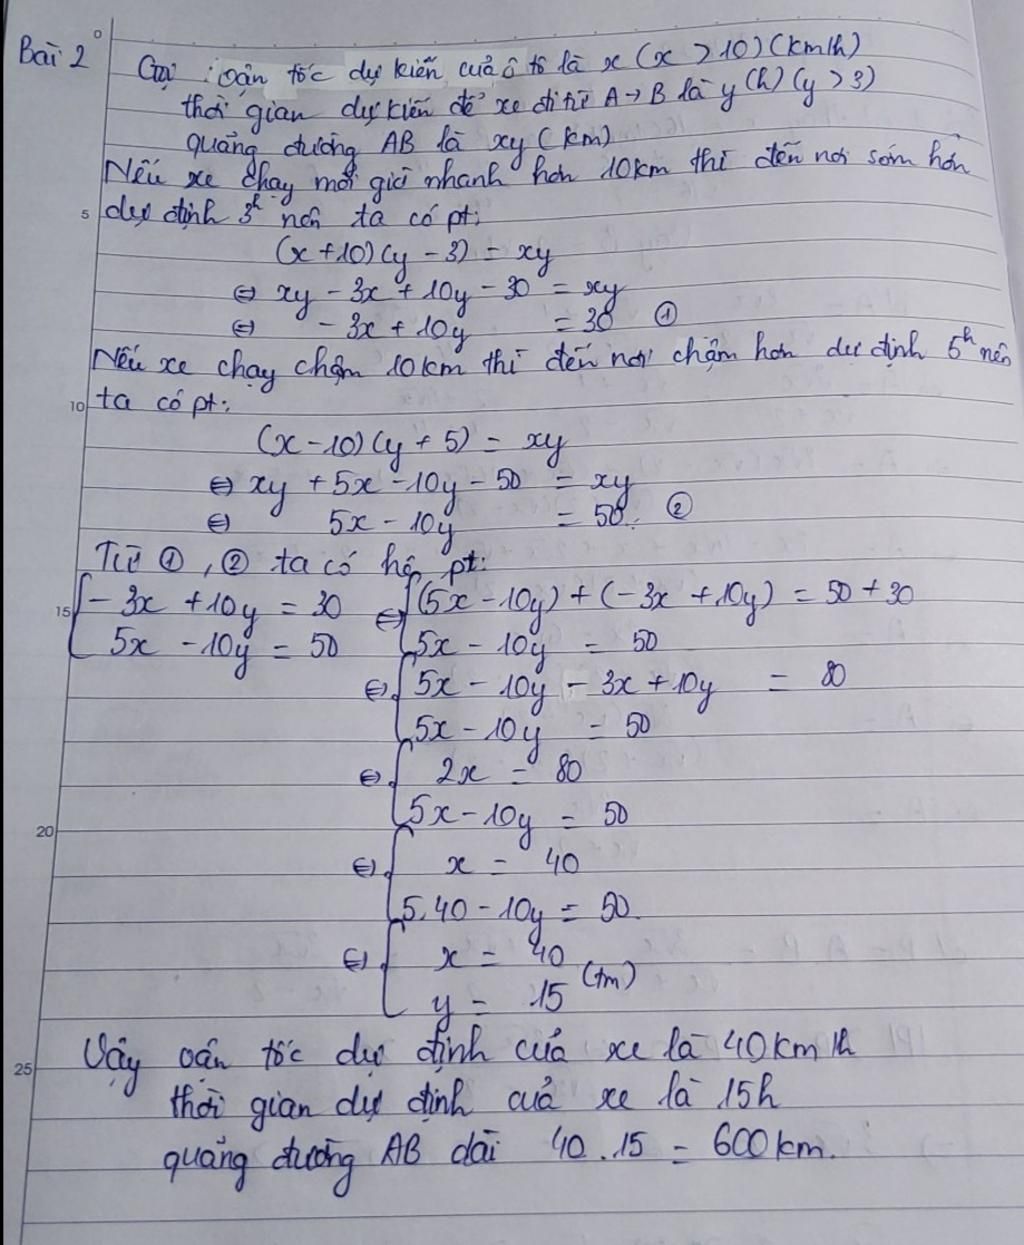 Bài 2°
Gọi : vận tốc dự kiến của ô tô là x (x > 10) (km/h)
thời gian dự kiến để xe đi từ A → B là y (h) (y > 3)
quãng đường AB là xy (km)
Nếu xe chạy mỗi giờ nhanh hơn 10km thì đến nơi sớm hơn
5 dự định 3h nên ta có pt:
(x + 10) (y - 3) = xy
⇔ xy - 3x + 10y - 30 = xy
⇔ - 3x + 10y = 30 ①
Nếu xe chạy chậm 10km thì đến nơi chậm hơn dự định 5h nên
10 ta có pt:
(x - 10) (y + 5) = xy
⇔ xy + 5x - 10y - 50 = xy
⇔ 5x - 10y = 50. ②
Từ ①, ② ta có hệ pt:
15 { - 3x + 10y = 30 ⇔ { (5x - 10y) + (-3x + 10y) = 50 + 30
5x - 10y = 50 5x - 10y = 50
⇔ { 5x - 10y - 3x + 10y = 80
5x - 10y = 50
⇔ { 2x = 80
20 5x - 10y = 50
⇔ { x = 40
5.40 - 10y = 50.
⇔ { x = 40 (tm)
y = 15
25 Vậy vận tốc dự định của xe là 40km/h
thời gian dự định của xe là 15h
quãng đường AB dài 40.15 = 600km.